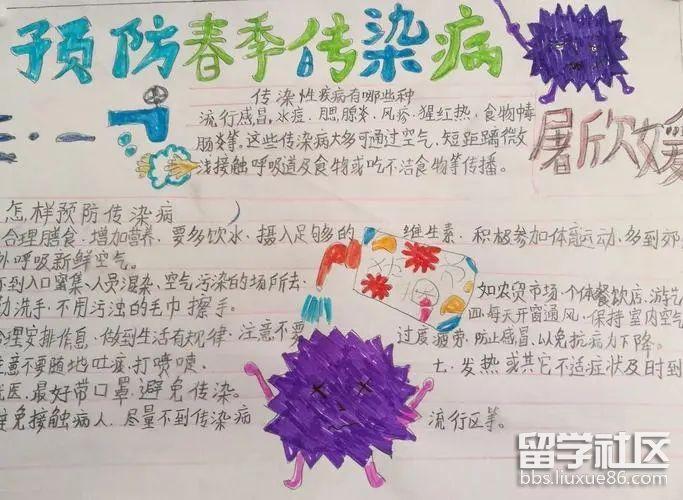 预防春季传染病
传染性疾病有哪些种
流行感冒，水痘、腮腺炎、风疹、猩红热、食物中毒
肠炎等。这些传染病大多可通过空气，短距离微
浅接触呼吸道及食物或吃不洁食物等传播。
屠欣媛
怎样预防传染病
合理膳食，增加营养，要多饮水，摄入足够的 维生素，积极参加体育运动，多到郊
外呼吸新鲜空气。
不到人口蜜集、人员混染、空气污染的场所去。 如农贸市场、个体餐饮店、游艺
勤洗手，不用污浊的毛巾擦手。 四、每天开窗通风，保持室内空气
合理安排作息，做到生活有规律，注意不要 过度疲劳，防止感冒，以免抗病力下降。
注意不要随地吐痰，打喷嚏。 七、发热或其它不适症状及时到
就医，最好带口罩，避免传染。
避免接触病人，尽量不到传染病 流行区等。
留学社区
bbs.liuxue86.com